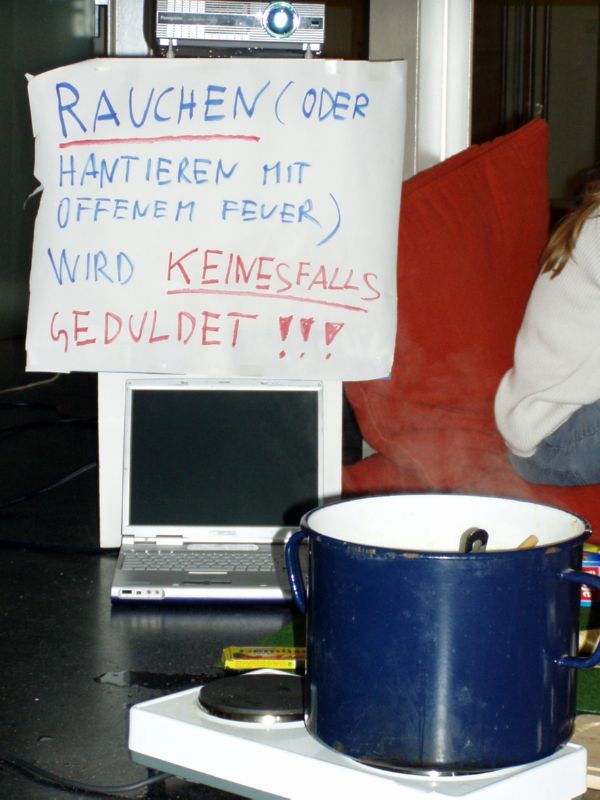 Panasonic
RAUCHEN (ODER
HANTIEREN MIT
OFFENEM FEUER)
WIRD KEINESFALLS
GEDULDET !!!